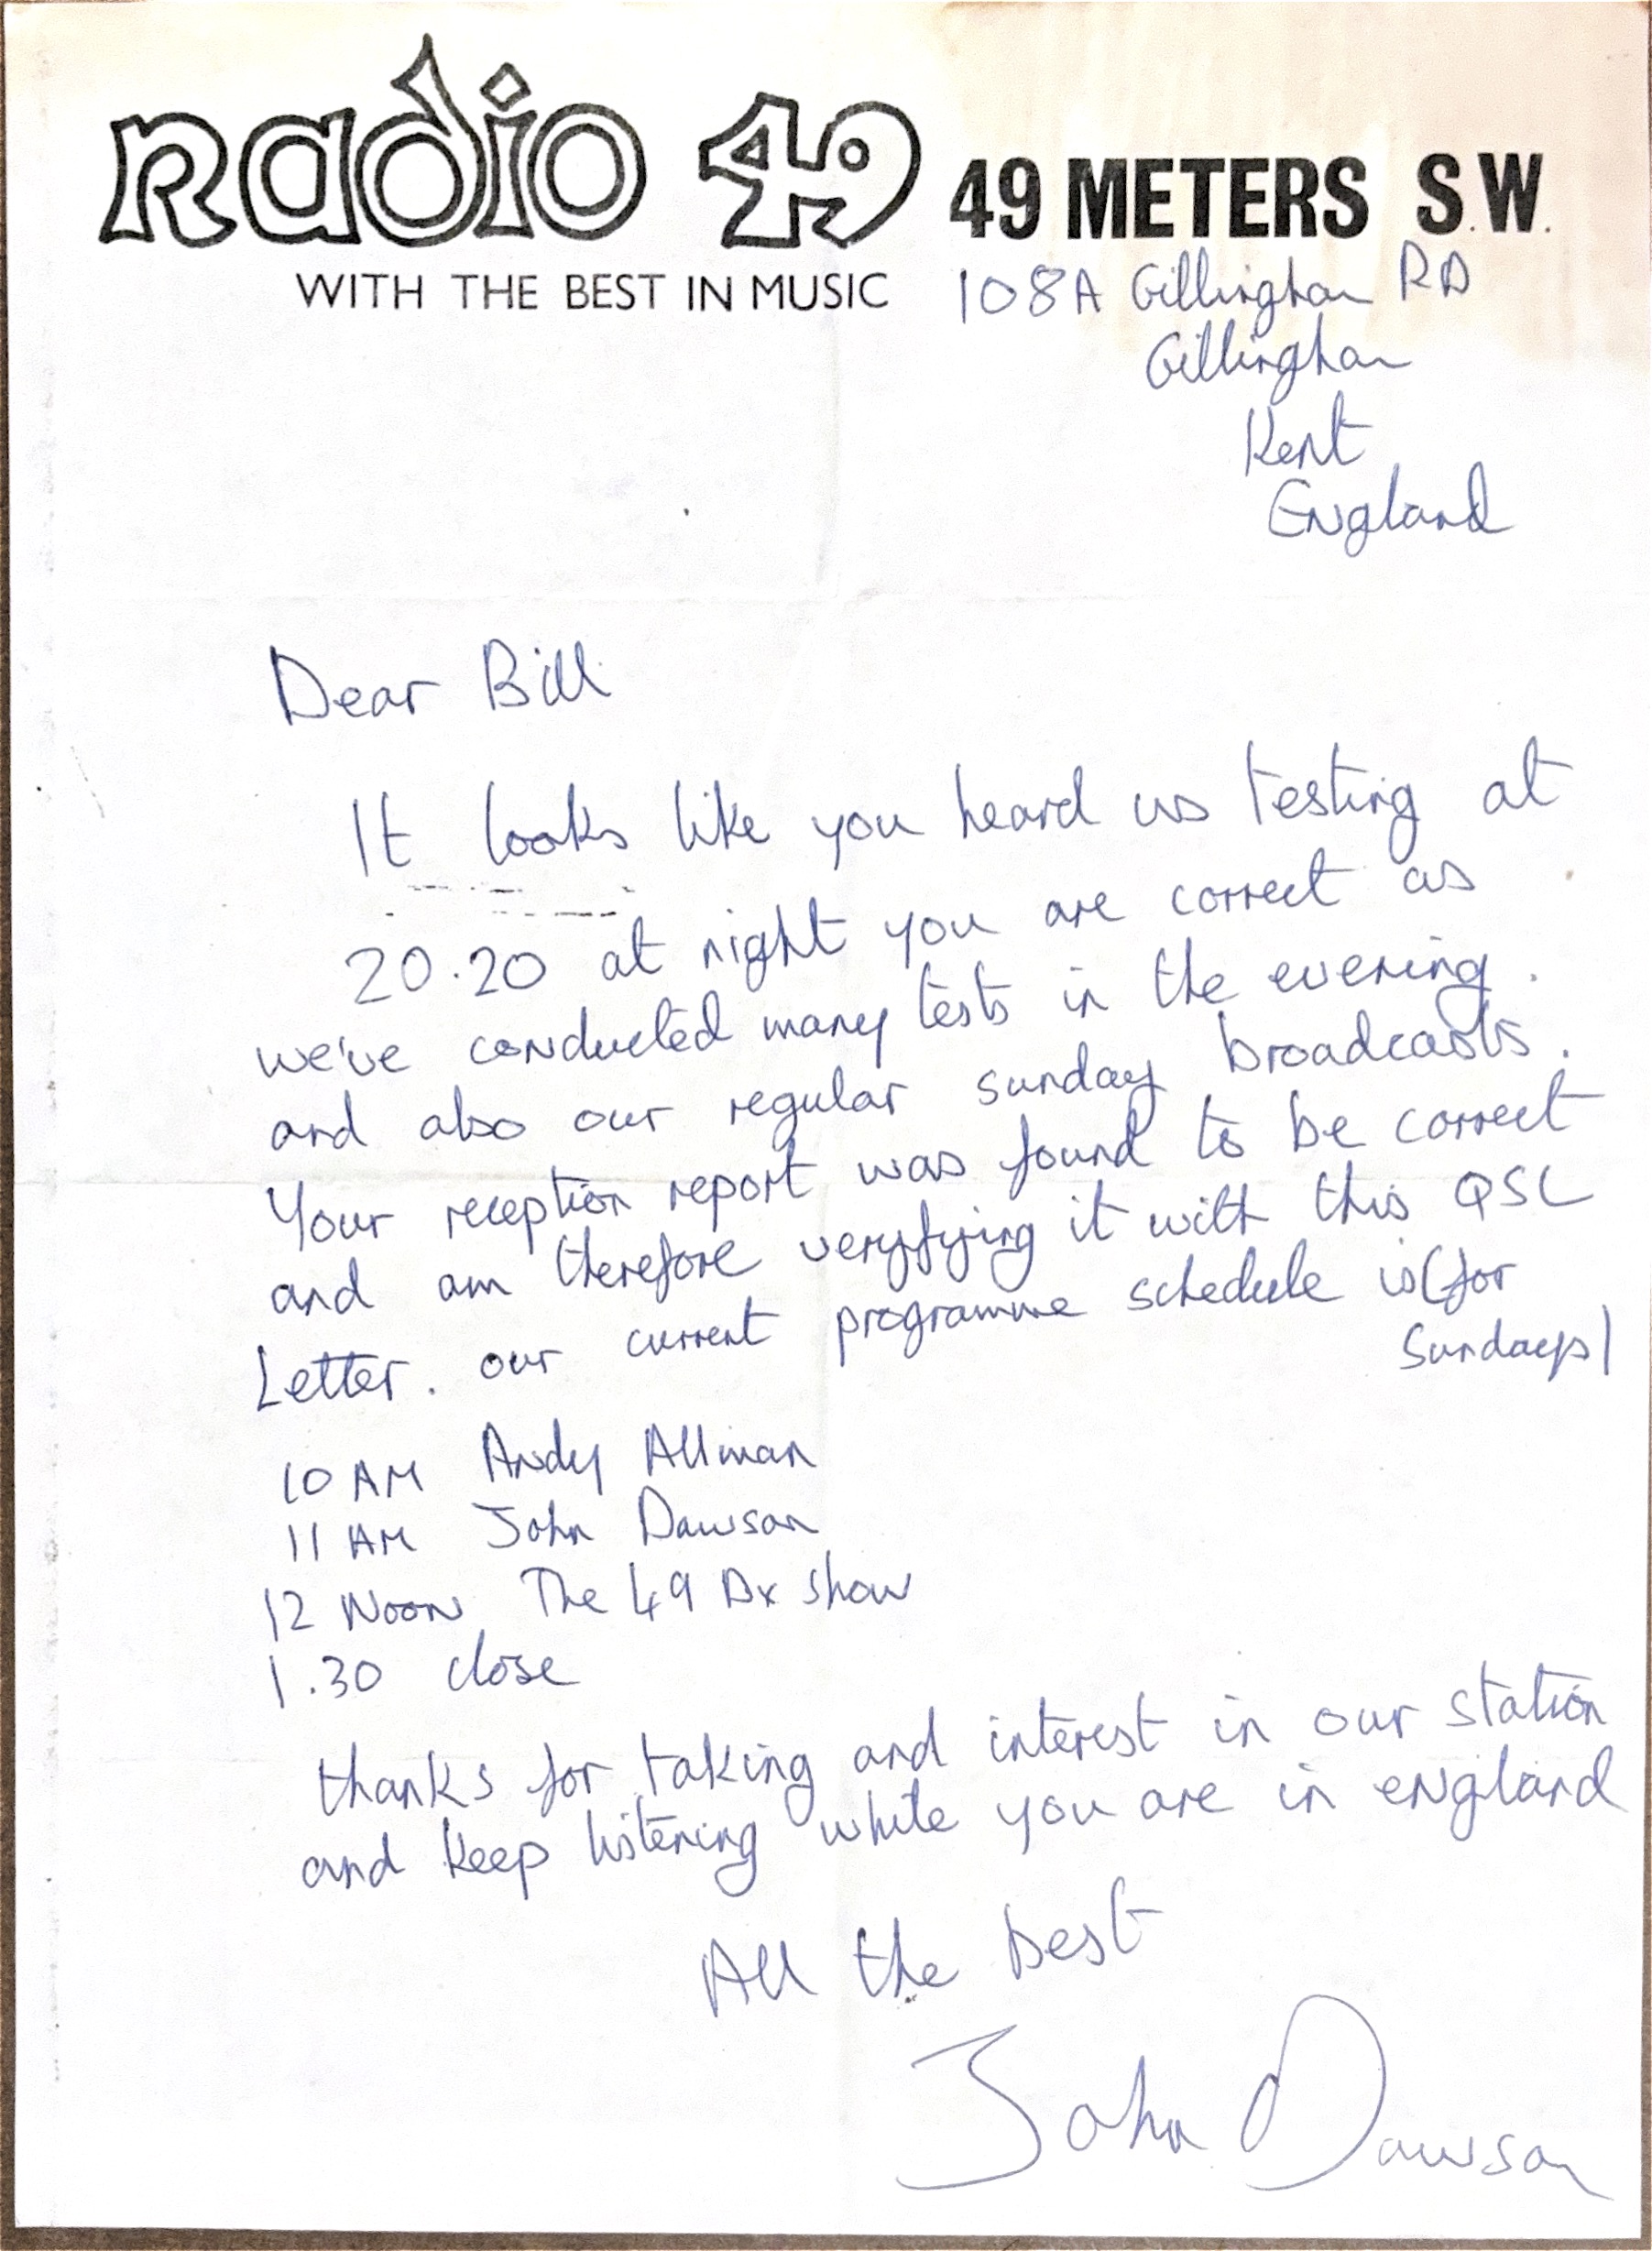 radio 49 49 METERS S.W.
WITH THE BEST IN MUSIC
108A Gillingham RD
Gillingham
Kent
England
Dear Bill
It looks like you heard us testing at
20.20 at night you are correct as
we've conducted many tests in the evening.
and also our regular sunday broadcasts.
Your reception report was found to be correct
and am therefore veryfying it with this QSL
Letter. our current programme schedule is (for
Sundays)
10 AM Andy Allman
11 AM John Dawson
12 Noon The 49 Dx show
1.30 close
thanks for taking and interest in our station
and keep listening while you are in england
All the best
John Dawson